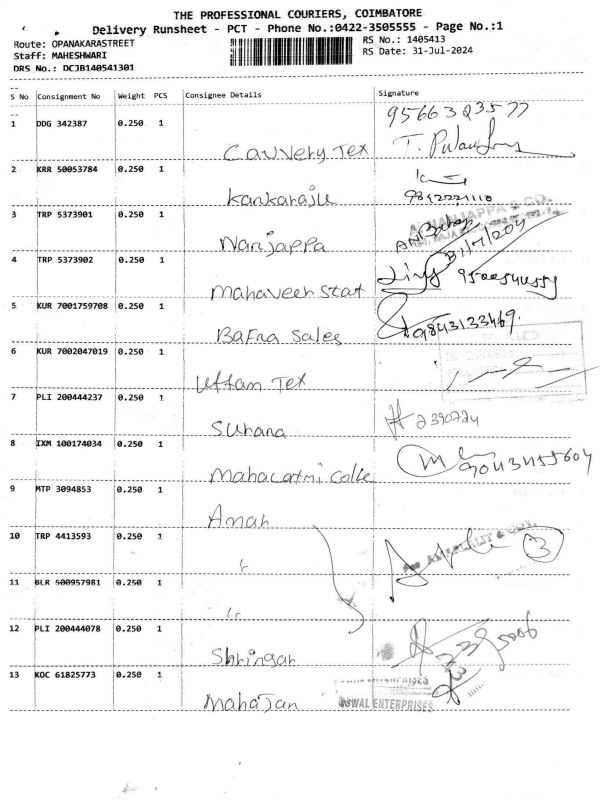 THE PROFESSIONAL COURIERS, COIMBATORE
Delivery Runsheet - PCT - Phone No.:0422-3505555 - Page No.:1
Route: OPANAKARASTREET
RS No.: 1405413
Staff: MAHESHWARI
RS Date: 31-Jul-2024
DRS No.: DCJB140541301
S No Consignment No Weight PCS Consignee Details Signature
1 DDG 342387 0.250 1 Cauvery Tex 9566323577
2 KRR 50053784 0.250 1 Kankaraju 9842221110
3 TRP 5373901 0.250 1 Nanjappa 31/7/204
4 TRP 5373902 0.250 1 Mahaveer Stat 9500544559
5 KUR 7001759708 0.250 1 Bafna Sales 9843133469.
6 KUR 7002047019 0.250 1 Uttam Tex
7 PLI 200444237 0.250 1 Suhana 2390724
8 IXM 100174034 0.250 1 9043455604
9 MTP 3094853 0.250 1 Amar
10 TRP 4413593 0.250 1 " 3
11 BLR 500957981 0.250 1 "
12 PLI 200444078 0.250 1 Shringar 2395006
13 KOC 61825773 0.250 1 Mahajan
OSWAL ENTERPRISES